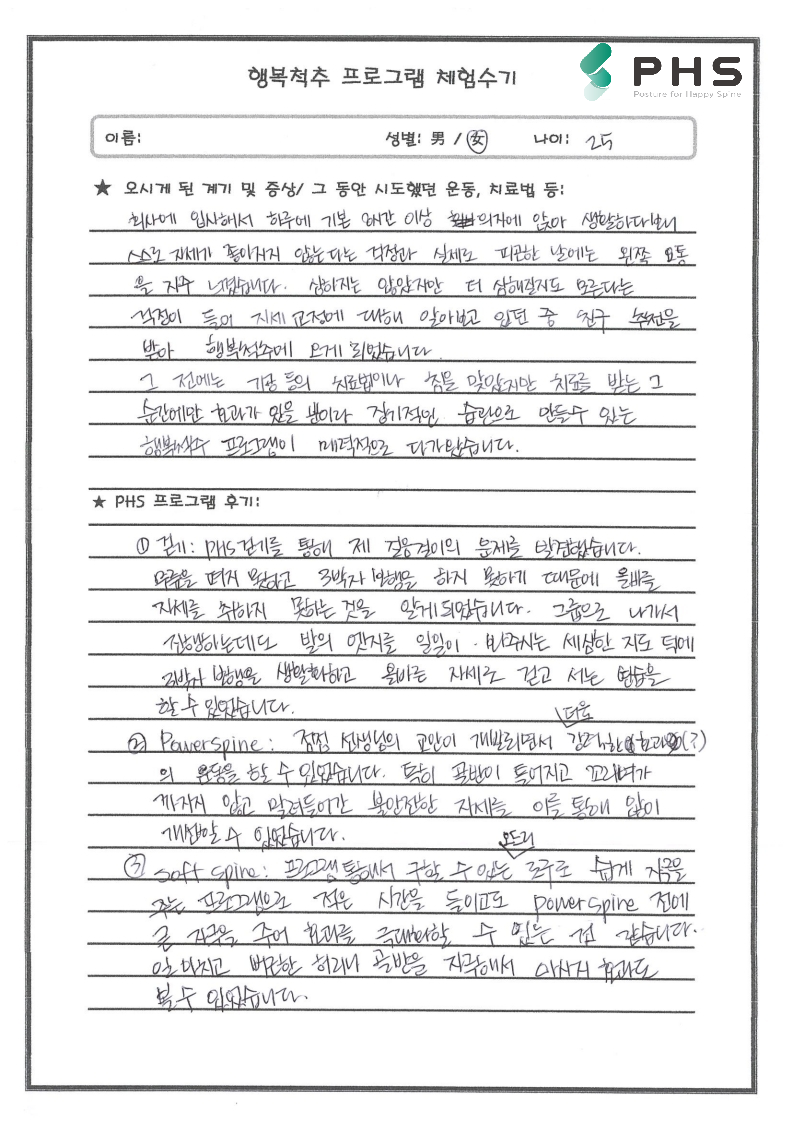 행복척추 프로그램 체험수기
PHS
Posture for Happy Spine
이름: 성별: 男 / 女 나이: 25
★ 오시게 된 계기 및 증상/ 그 동안 시도했던 운동, 치료법 등:
회사에 입사해서 하루에 기본 8시간 이상 의자에 앉아 생활하다보니
스스로 자세가 좋아지지 않는다는 걱정과 실제로 피곤한 날에는 왼쪽 요통
을 자주 느꼈습니다. 심하지는 않았지만 더 심해질지도 모른다는
걱정이 들어 자세교정에 대해 알아보고 있던 중 친구 추천을
받아 행복척추에 오게 되었습니다.
그 전에는 기공 등의 치료법이나 침을 맞았지만 치료를 받는 그
순간에만 효과가 있을 뿐이라 장기적인 습관으로 만들수 있는
행복척추 프로그램이 매력적으로 다가왔습니다.
★ PHS 프로그램 후기:
① 걷기: PHS 걷기를 통해 제 걸음걸이의 문제를 발견했습니다.
무릎을 펴지 못하고 3박자 보행을 하지 못하기 때문에 올바를
자세를 취하지 못하는 것을 알게되었습니다. 그룹으로 나가서
진행하는데도 발의 엣지를 일일이 봐주시는 세심한 지도 덕에
3박자 보행을 생활화하고 올바른 자세로 걷고 서는 연습을
할 수 있었습니다.
더욱
② Powerspine: 점점 선생님의 교안이 개발되면서 강력한 효과(?)
의 운동을 할 수 있었습니다. 특히 골반이 틀어지고 꼬리뼈가
까지지 않고 말려들어간 불안전한 자세를 이를 통해 많이
개선할 수 있었습니다.
오드리
③ Soft Spine: 프로그램 통해서 구할 수 있는 도구로 쉽게 자극을
주는 프로그램으로 적은 시간을 들이고도 powerspine 전에
큰 자극을 주어 효과를 극대화할 수 있는 것 같습니다.
일 마치고 뻐근한 허리나 골반을 자극해서 마사지 효과도
볼 수 있었습니다.